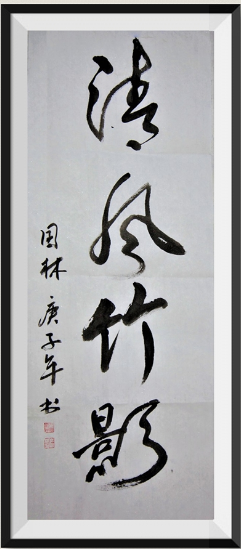 清风竹影
国林庚子年书